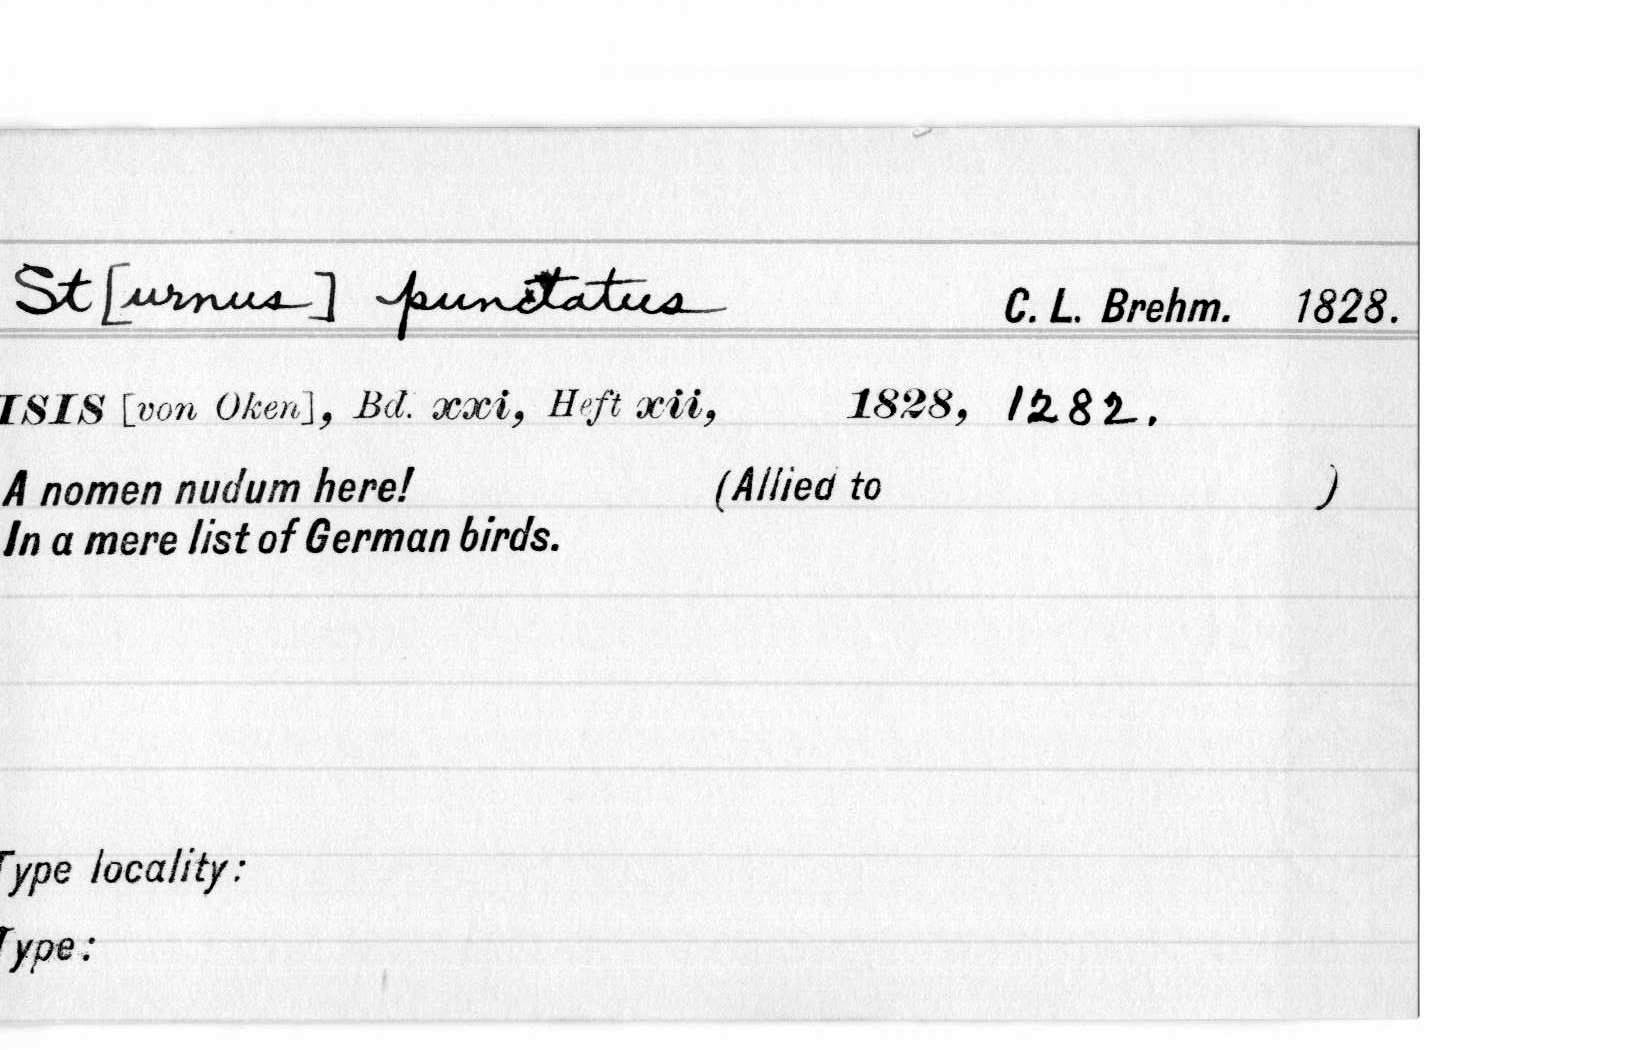 St[urnus] punctatus C. L. Brehm. 1828.
ISIS [von Oken], Bd. xxi, Heft xii, 1828, 1282.
A nomen nudum here! (Allied to )
In a mere list of German birds.
Type locality:
Type: